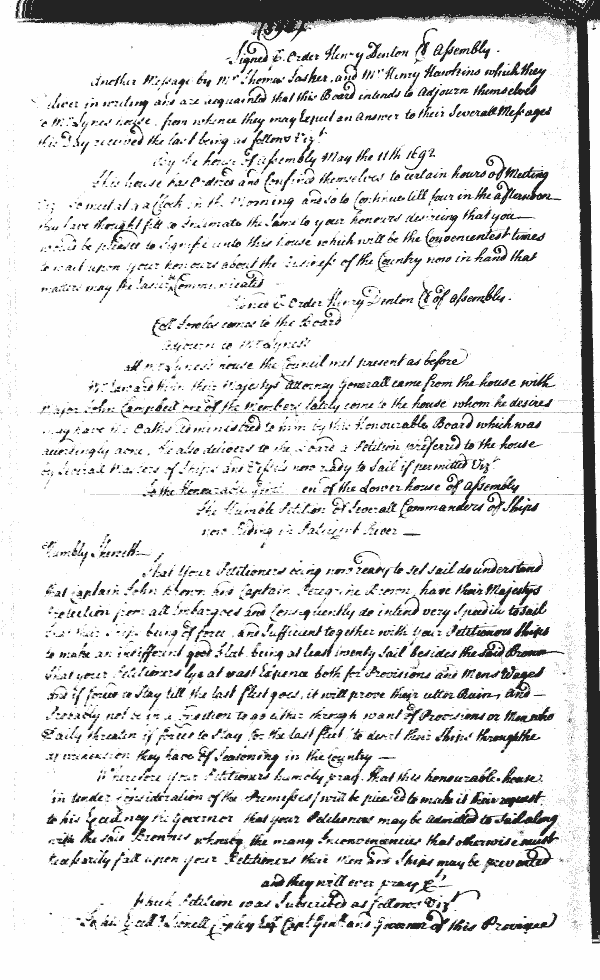 Signed P. Order Henry Denton Cl Assembly.
Another Message by Mr Thomas Tasker, and Mr Henry Hawkins which they
deliver in writing and are acquainted that this Board intends to Adjourn themselves
to house, from whence they may Expect an Answer to their Severall Messages
this Day received the last being as follows Vizt
By the house of Assembly May the 11th 1692
This house has Ordered and Confined themselves to certain hours of Meeting
Viz to meet at a Clock in the Morning and so to Continue till four in the afternoon
they have thought fitt to Intimate the same to your honours desireing that you
would be pleased to signifie unto this house which will be the Convenientest times
to wait upon your honours about the Business of the Country now in hand that
matters may be Easier Communicated
Signed P Order Henry Denton Cl of Assembly.
Coll Jowles comes to the Board
Adjourn to
att house the Council met present as before
Mr their Majestys Attorney Generall came from the house with
Major John Campbell one of the Members lately come to the house whom he desires
may have the Oaths administred to him by this Honourable Board which was
accordingly done, he also delivers to the Board a Petition preferred to the house
by Severall Masters of Ships and Vessels now ready to Sail if permitted Vizt
To the Honourable Gent en of the Lower house of Assembly
The Humble Petition of Severall Commanders of Ships
now Riding in Patuxent River
Humbly Sheweth
That Your Petitioners being now ready to set sail do understand
that Captain John Brown, and Captain Peregrine Brown, have their Majestys
Protection from all Embargoes and Consequently do intend very Speedily to sail
that their Ships being of force, and Sufficient together with your Petitioners Ships
to make an indifferent good fleet being at least twenty Sail besides the said Browns
that your Petitioners lye at vast Expence both for Provisions and Mens Wages
and if forced to Stay till the last fleet goes, it will prove their utter Ruin, and
Probably not be in a Condition to go either through want of Provisions or Men who
Daily threaten if forced to Stay for the last fleet to desert their Ships through the
apprehension they have of Seasoning in the Country
Wherefore Your Petitioners humbly pray, that this honourable house
in tender Consideration of the Premesses will be pleased to make it their request
to his Excellency the Governor that your Petitioners may be admitted to Sail along
with the said Browns whereby the many Inconveniencies that otherwise must
necessarily fall upon your Petitioners their Men and Ships may be prevented
and they will ever pray &ct
Which Petition was Subscribed as follows Vizt
To his Excellcy Lionell Copley Esqr Capt Genll and Governor of this Province